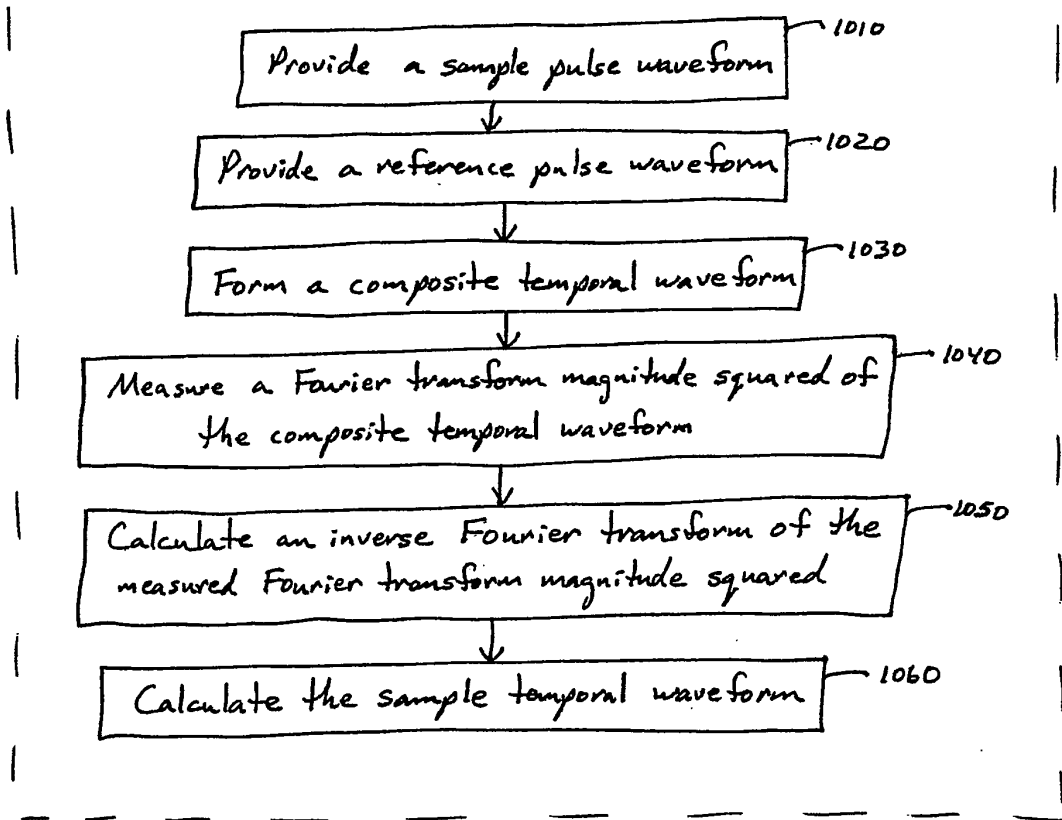 1010
Provide a sample pulse waveform
1020
Provide a reference pulse waveform
1030
Form a composite temporal waveform
1040
Measure a Fourier transform magnitude squared of
the composite temporal waveform
1050
Calculate an inverse Fourier transform of the
measured Fourier transform magnitude squared
1060
Calculate the sample temporal waveform